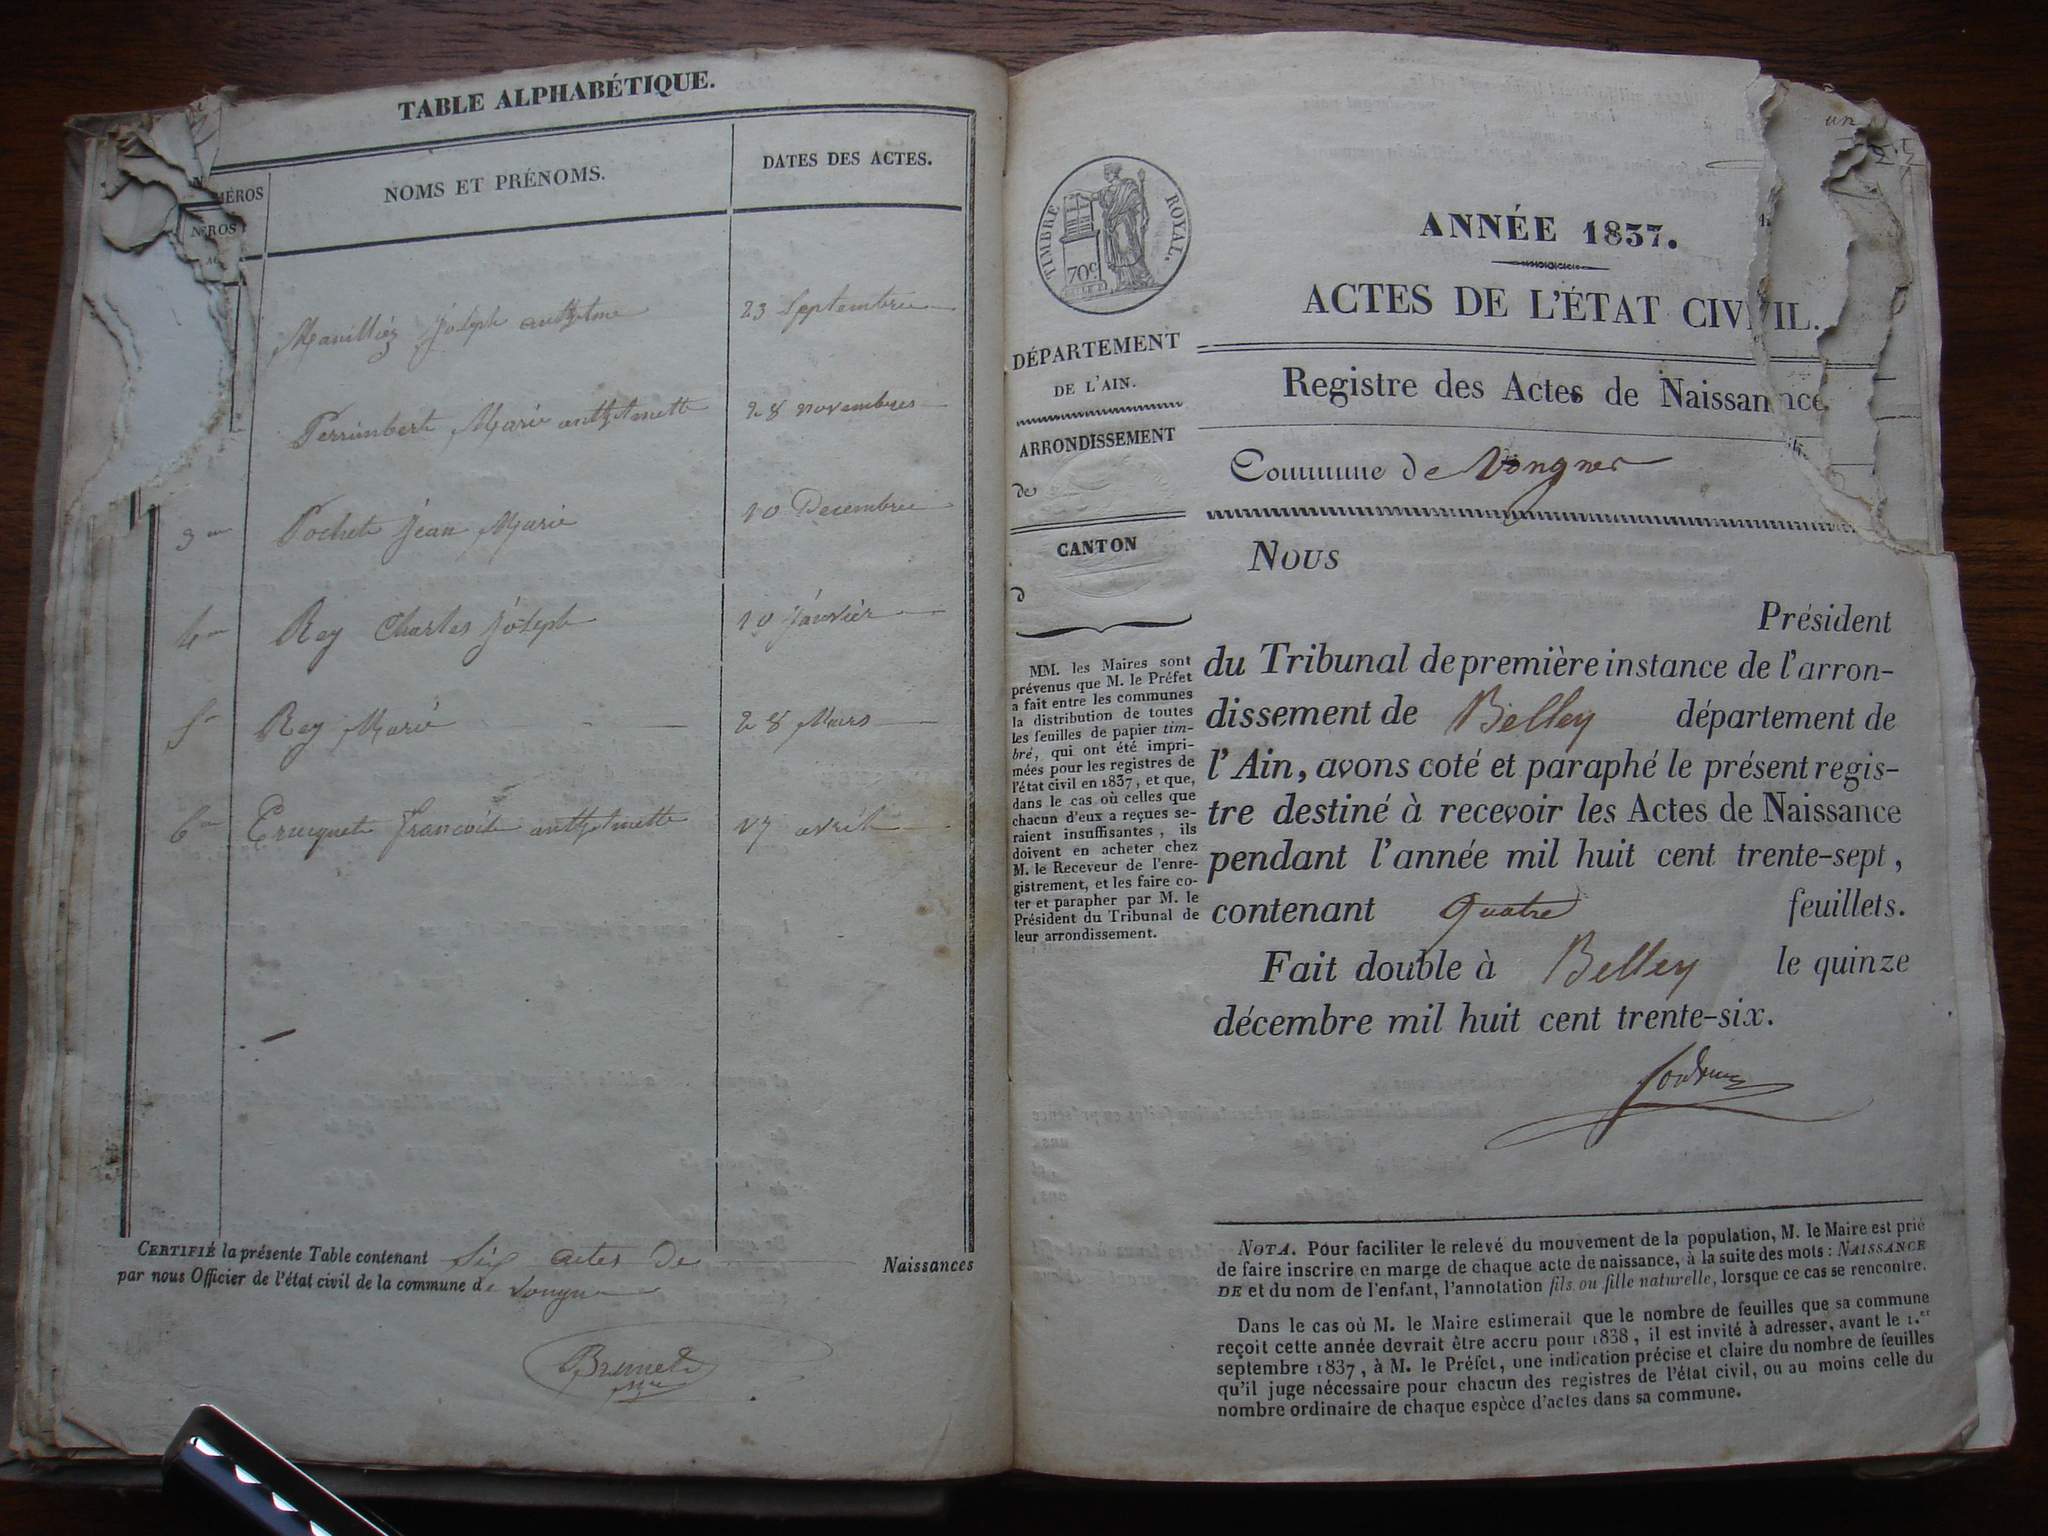 TABLE ALPHABÉTIQUE.
NUMÉROS
NOMS ET PRÉNOMS.
DATES DES ACTES.
Joseph anthelme 23 Septembre
Marie 28 novembre
3 Pochet Jean Marie 10 Decembre
4 Rey Charles Joseph 10 Janvier
5 Rey Marie 28 Mars
6 17 avril
CERTIFIÉ la présente Table contenant Six actes de Naissances
par nous Officier de l'état civil de la commune de Vongnes
Brunet
TIMBRE ROYAL.
70c
ANNÉE 1837.
ACTES DE L'ÉTAT CIVIL.
Registre des Actes de Naissance
Commune de Vongnes
DÉPARTEMENT
DE L'AIN.
ARRONDISSEMENT
de
CANTON
d
MM. les Maires sont
prévenus que M. le Préfet
a fait entre les communes
la distribution de toutes
les feuilles de papier tim-
bré, qui ont été impri-
mées pour les registres de
l'état civil en 1837, et que,
dans le cas où celles que
chacun d'eux a reçues se-
raient insuffisantes, ils
doivent en acheter chez
M. le Receveur de l'enre-
gistrement, et les faire co-
ter et parapher par M. le
Président du Tribunal de
leur arrondissement.
NOUS
Président
du Tribunal de première instance de l'arron-
dissement de Belley département de
l'Ain, avons coté et paraphé le présent regis-
tre destiné à recevoir les Actes de Naissance
pendant l'année mil huit cent trente-sept,
contenant quatre feuillets.
Fait double à Belley le quinze
décembre mil huit cent trente-six.
NOTA. Pour faciliter le relevé du mouvement de la population, M. le Maire est prié
de faire inscrire en marge de chaque acte de naissance, à la suite des mots : NAISSANCE
DE et du nom de l'enfant, l'annotation fils ou fille naturelle, lorsque ce cas se rencontre.
Dans le cas où M. le Maire estimerait que le nombre de feuilles que sa commune
reçoit cette année devrait être accru pour 1838, il est invité à adresser, avant le 1.er
septembre 1837, à M. le Préfet, une indication précise et claire du nombre de feuilles
qu'il juge nécessaire pour chacun des registres de l'état civil, ou au moins celle du
nombre ordinaire de chaque espèce d'actes dans sa commune.